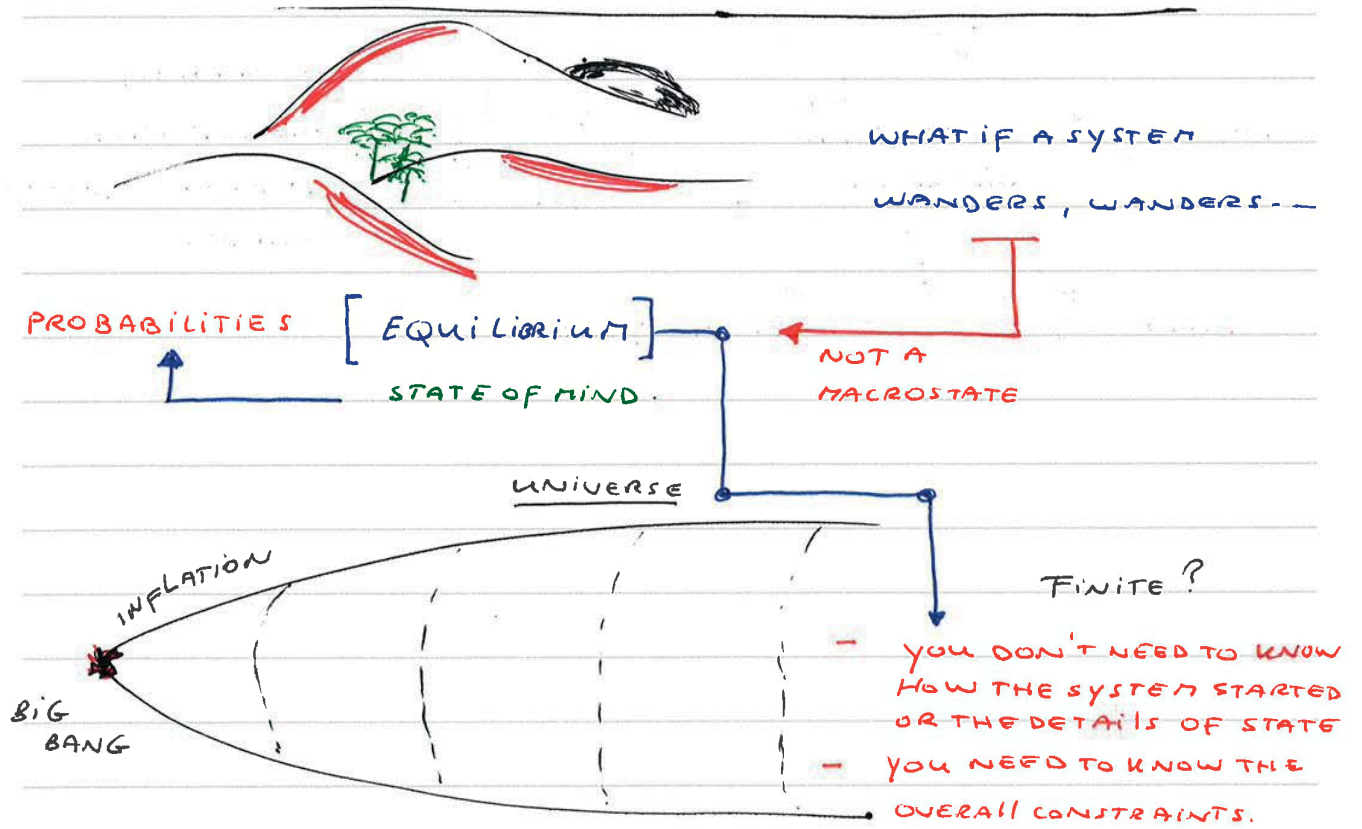 WHAT IF A SYSTEM
WANDERS, WANDERS - -
PROBABILITIES
[EQUILIBRIUM]
NOT A
MACROSTATE
STATE OF MIND.
UNIVERSE
INFLATION
BIG
BANG
FINITE?
- YOU DON'T NEED TO KNOW
HOW THE SYSTEM STARTED
OR THE DETAILS OF STATE
- YOU NEED TO KNOW THE
OVERALL CONSTRAINTS.